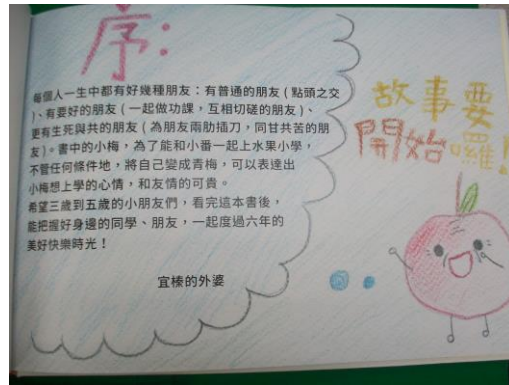 序：
每個人一生中都有好幾種朋友：有普通的朋友(點頭之交
)、有要好的朋友(一起做功課，互相切磋的朋友)、
更有生死與共的朋友(為朋友兩肋插刀，同甘共苦的朋
友)。書中的小梅，為了能和小番一起上水果小學，
不管任何條件地，將自己變成青梅，可以表達出
小梅想上學的心情，和友情的可貴。
希望三歲到五歲的小朋友們，看完這本書後，
能把握好身邊的同學、朋友，一起度過六年的
美好快樂時光！
宜榛的外婆
故事要
開始囉！